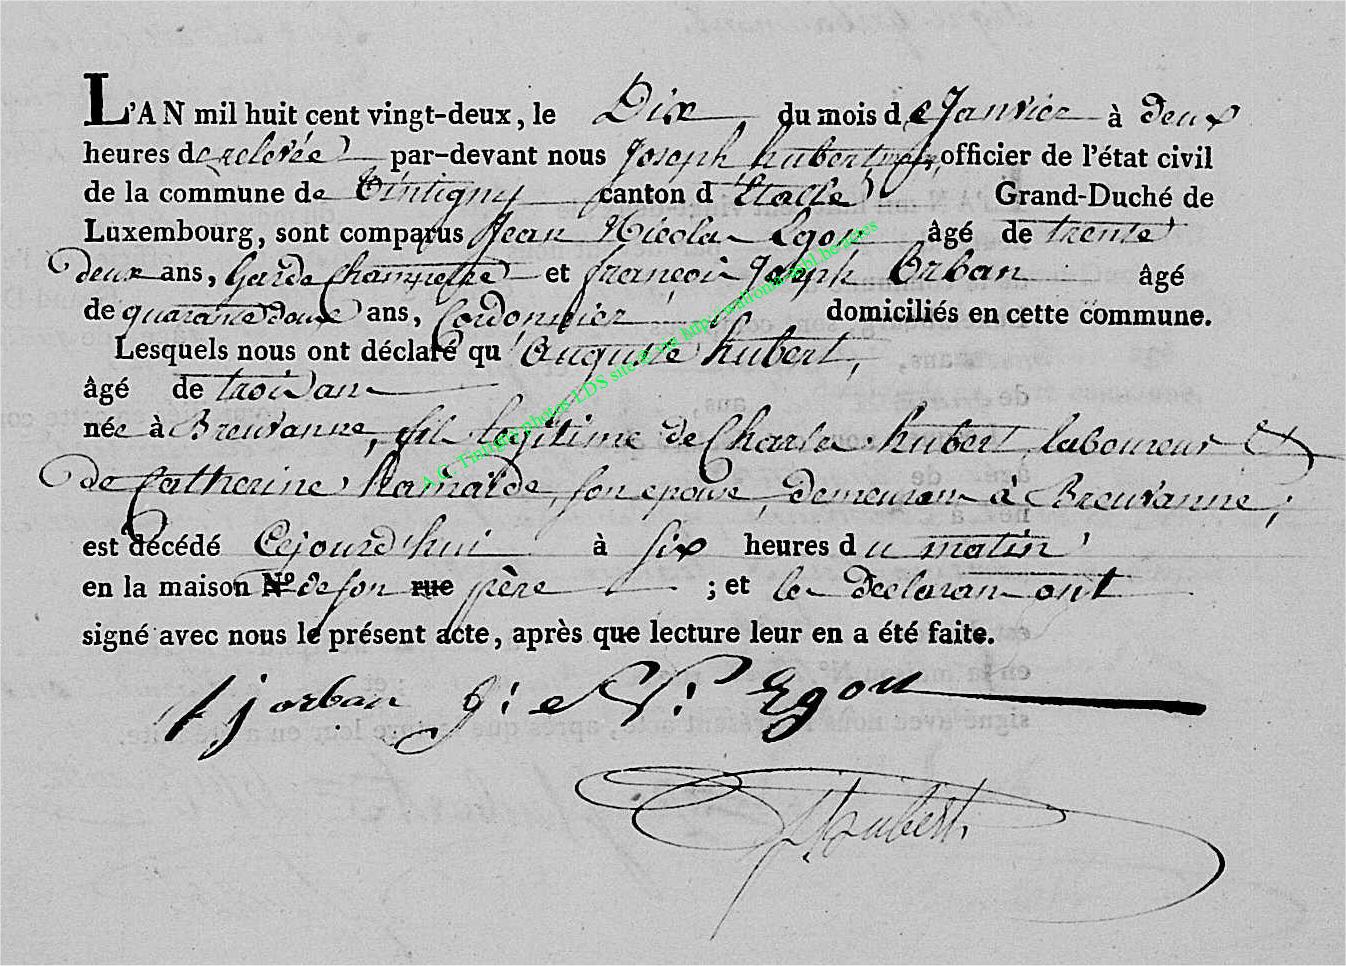 L'AN mil huit cent vingt-deux, le Dix du mois de Janvier à deux
heures de relevée par-devant nous Joseph hubert, officier de l'état civil
de la commune de Tintigny canton d'Etalle Grand-Duché de
Luxembourg, sont comparus Jean Nicolas Egon âgé de trente
deux ans, Garde Champetre et françois Joseph Orban âgé
de quarante deux ans, Cordonnier domiciliés en cette commune.
Lesquels nous ont déclaré qu'Auguste hubert,
âgé de trois ans
née à Breuvanne, fils legitime de Charles hubert laboureur &
de Catherine hamaide, son epouse, demeurant à Breuvanne,
est décédé Cejourd'hui à six heures du matin
en la maison N.º de son rue père ; et les declarans ont
signé avec nous le présent acte, après que lecture leur en a été faite.
f j orban J: N: Egon
Hubert
A.C. Tintigny photos LDS site via http://wallonia.mbl.be/actes